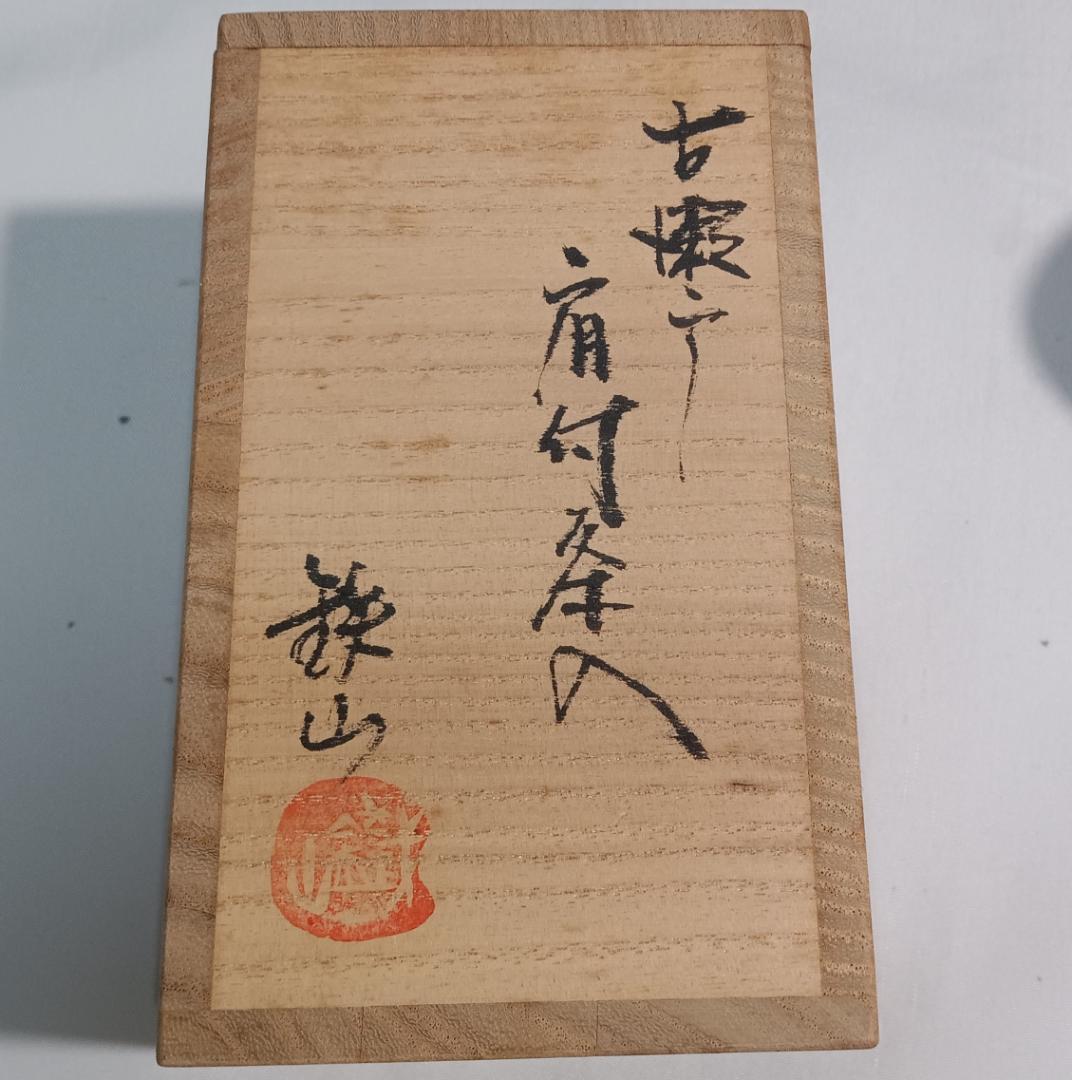 古瀬戸
肩付茶入
鉄山